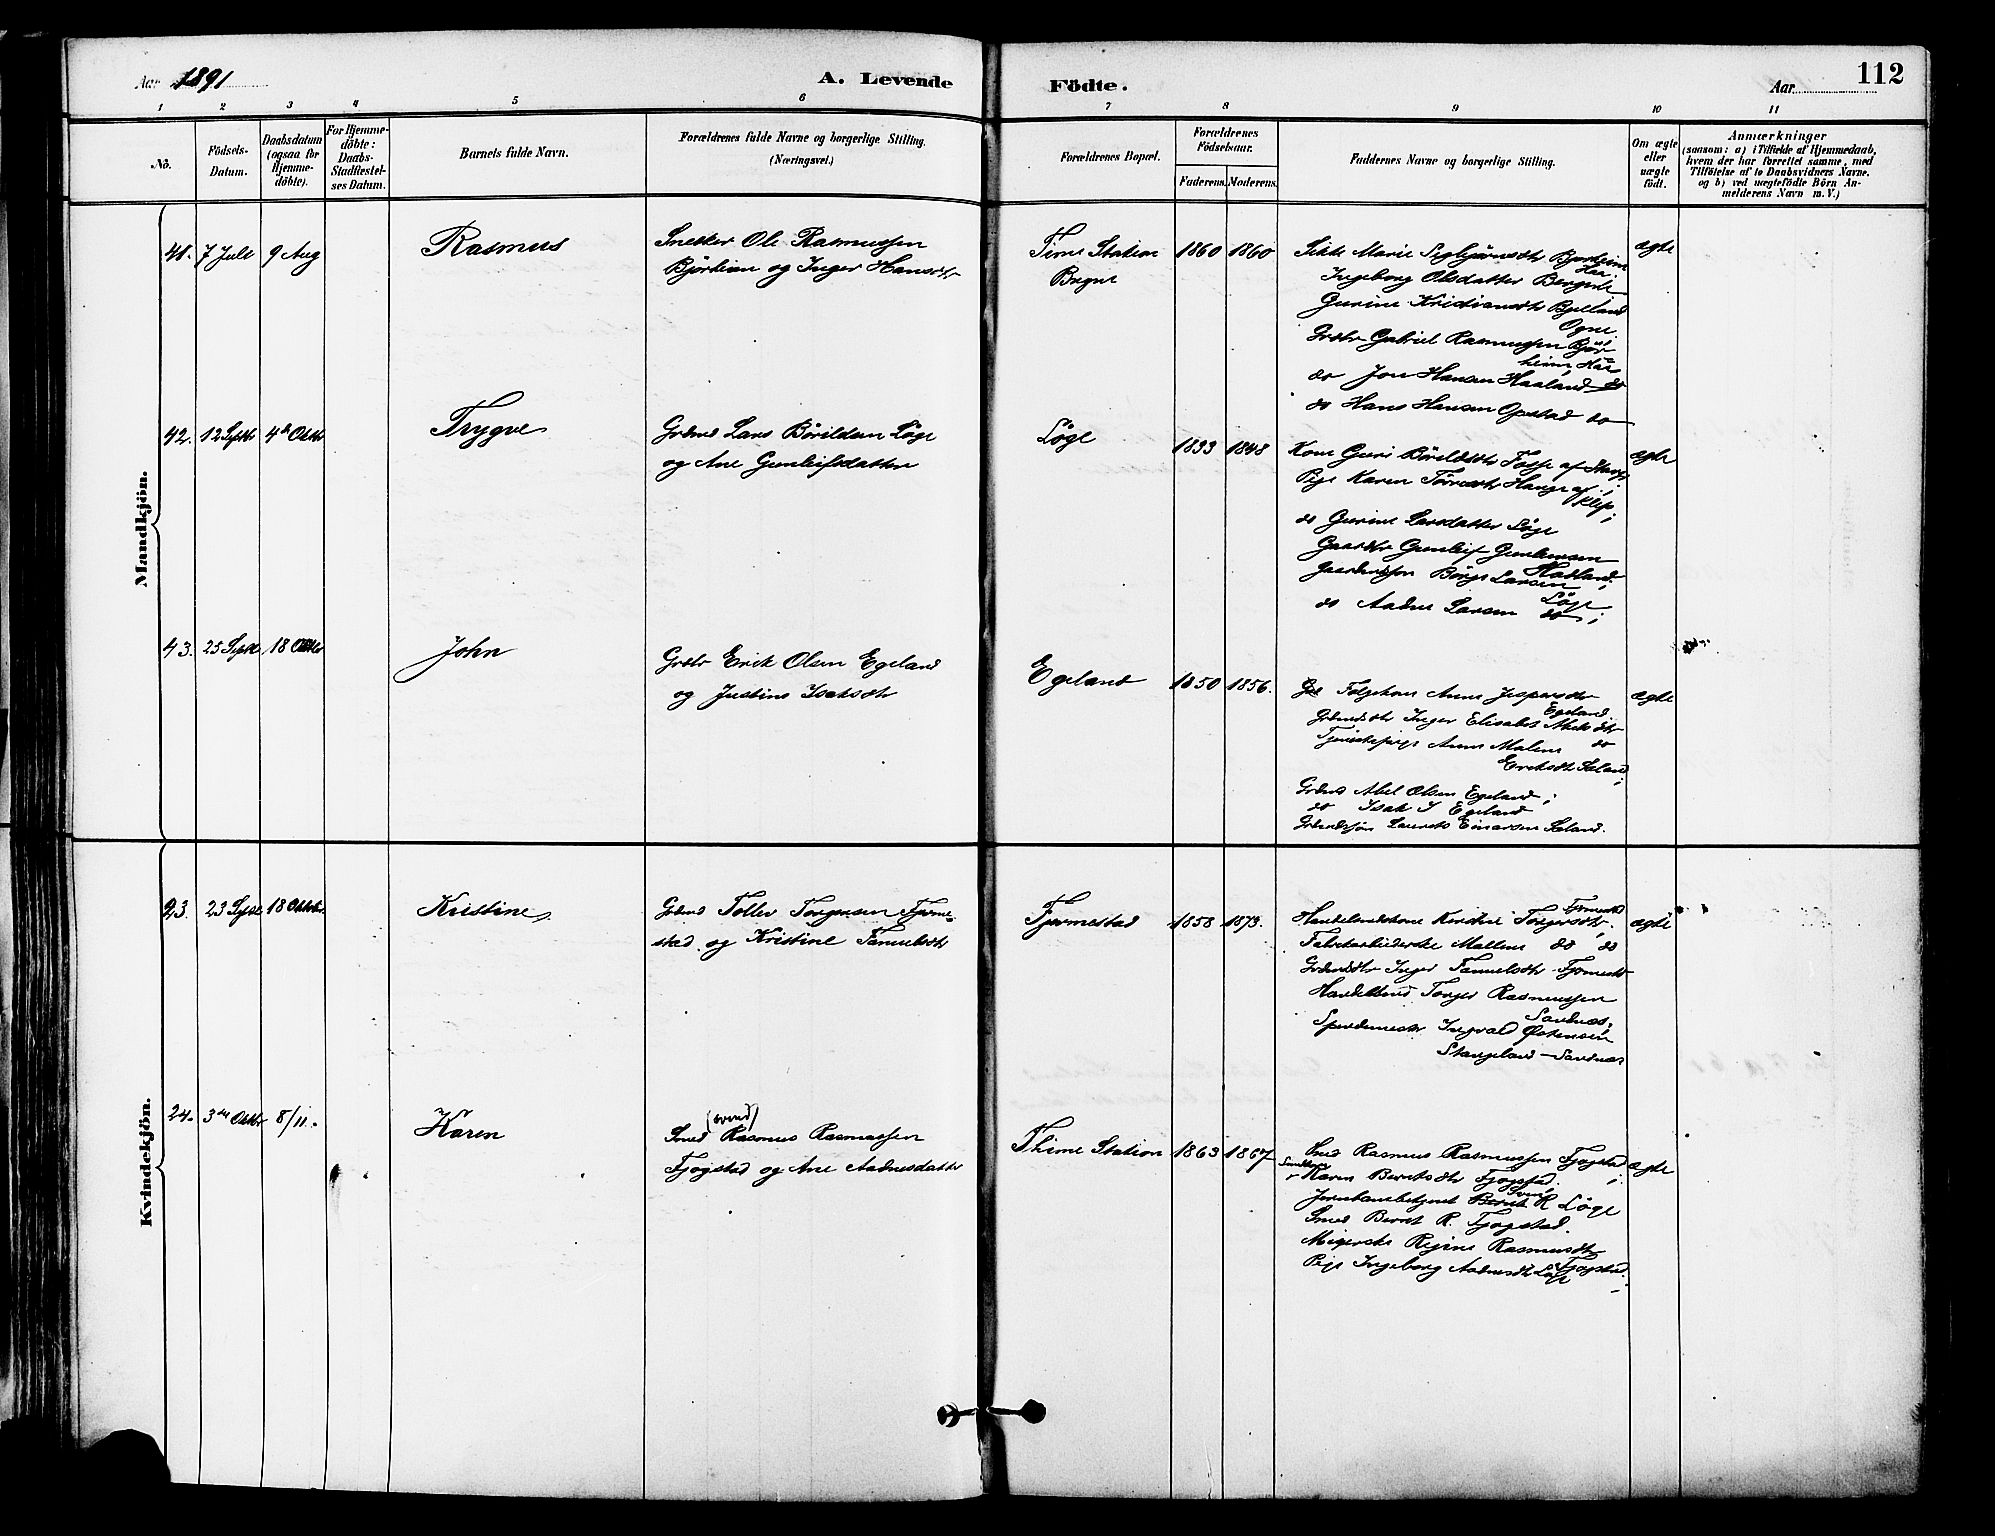 Aar 1891
A. Levende
Födte.
Aar
112
1 2 3 4 5 6 7 8 9 10 11
No.
Födsels-
Datum.
Daabsdatum
(ogsaa for
Hjemme-
döbte).
For Hjemme-
döbte:
Daabs-
Stadfæstel-
ses Datum.
Barnets fulde Navn.
Forældrenes fulde Navne og borgerlige Stilling.
(Næringsvei.)
Forældrenes Bopæl.
Forældrenes
Födselsaar.
Faderens.
Moderens.
Faddernes Navne og borgerlige Stilling.
Om ægte
eller
uægte
födt.
Anmærkninger
(saasom: a) i Tilfælde af Hjemmedaab,
hvem der har forrettet samme, med
Tilföielse af to Daabsvidners Navne.
og b) ved uægtefödte Börn An-
melderens Navn m.V.)
Mandkjön.
41. 7 Juli 9 Aug
Rasmus
Snekker Ole Rasmussen
og Inger Hansdtr
Time Station
Bryne
1860 1860
Ingeborg Olsdatter
Gurine Kristiansdtr Bjelland
Ogne
Grdbr Gabriel Rasmussen Bjor-
heim, Haa
do Jon Hansen Haaland do
do Hans Hansen Opstad do
ægte
42. 12 Septbr 4de Oktbr
Trygve
Grdmd Lars Börildsen Löge
og Ane Gunleifsdatter
Löge
1833 1848
Kone Guri Börildsdtr Fosse af
Pige Karen Hauge af
Klep;
do Gurine Larsdatter Löge
Gaardbr Gunleif Gunleivsen
Haaland;
Gaardmdssön Börge Larsen
Löge
do Aadne Larsen do;
ægte
43. 25 Sept. 18 Oktbr
John
Grdbr Erik Olsen Egeland
og Justine Isaksdtr
Egeland
1850 1856.
Anne Jespersdtr
Egeland
Grdmdsdtr Inger Elisabet Abelsdtr
do
Tjenestepige Anne Malene
Eriksdtr
Grdmd Abel Olsen Egeland;
do Isak J Egeland
Grdmdssön Laurits Einarsen
ægte
Kvindekjön.
23. 23 Sept 18 Oktbr.
Kristine
Grdmd Tollev Torgersen Fjerme-
stad og Kristine Samuelsdtr
Fjermestad
1858 1873.
Handelsmdskone Torgersdtr.
Fabrikarbeiderske Mallene do do
Grdmdsdtr Inger Samuelsdtr Fjermest
Handelsmd Torger Rasmussen
Sandnæs;
Ingvald Östensen
Stangeland - Sandnæs
ægte
24. 3die Oktbr 8/11.
Karen
Smed Rasmus Rasmussen
Fjogstad og Ane Aadnesdatter
Thime Station
1863 1867
Smed Rasmus Rasmussen Fjogstad;
Karen Berntsdtr Fjogstad.
Jernbanebetjent R Löge
Smed Bernt R. Fjogstad.
Meierske Regine Rasmusdtr
Fjogstad.
Pige Ingeborg Aadnesdtr Löge
ægte